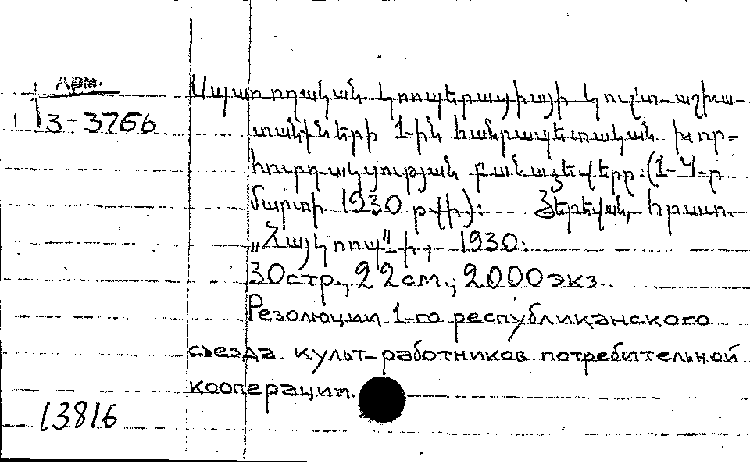 Арм.
13-3766
Սպառողական կոոպերացիայի կուլտ-աշխա-
տանկիների 1-ին հանրապետական խոր-
հուրդակցության բանաձևերը. (1-4-ը
մարտի 1930 թվի): Յերևան, հրատ.
„Հայկոոպ"ի, 1930.
30стр., 22см., 2000экз.
Резолюции 1-го республиканского
съезда культ-работников потребительной
кооперации.
13816